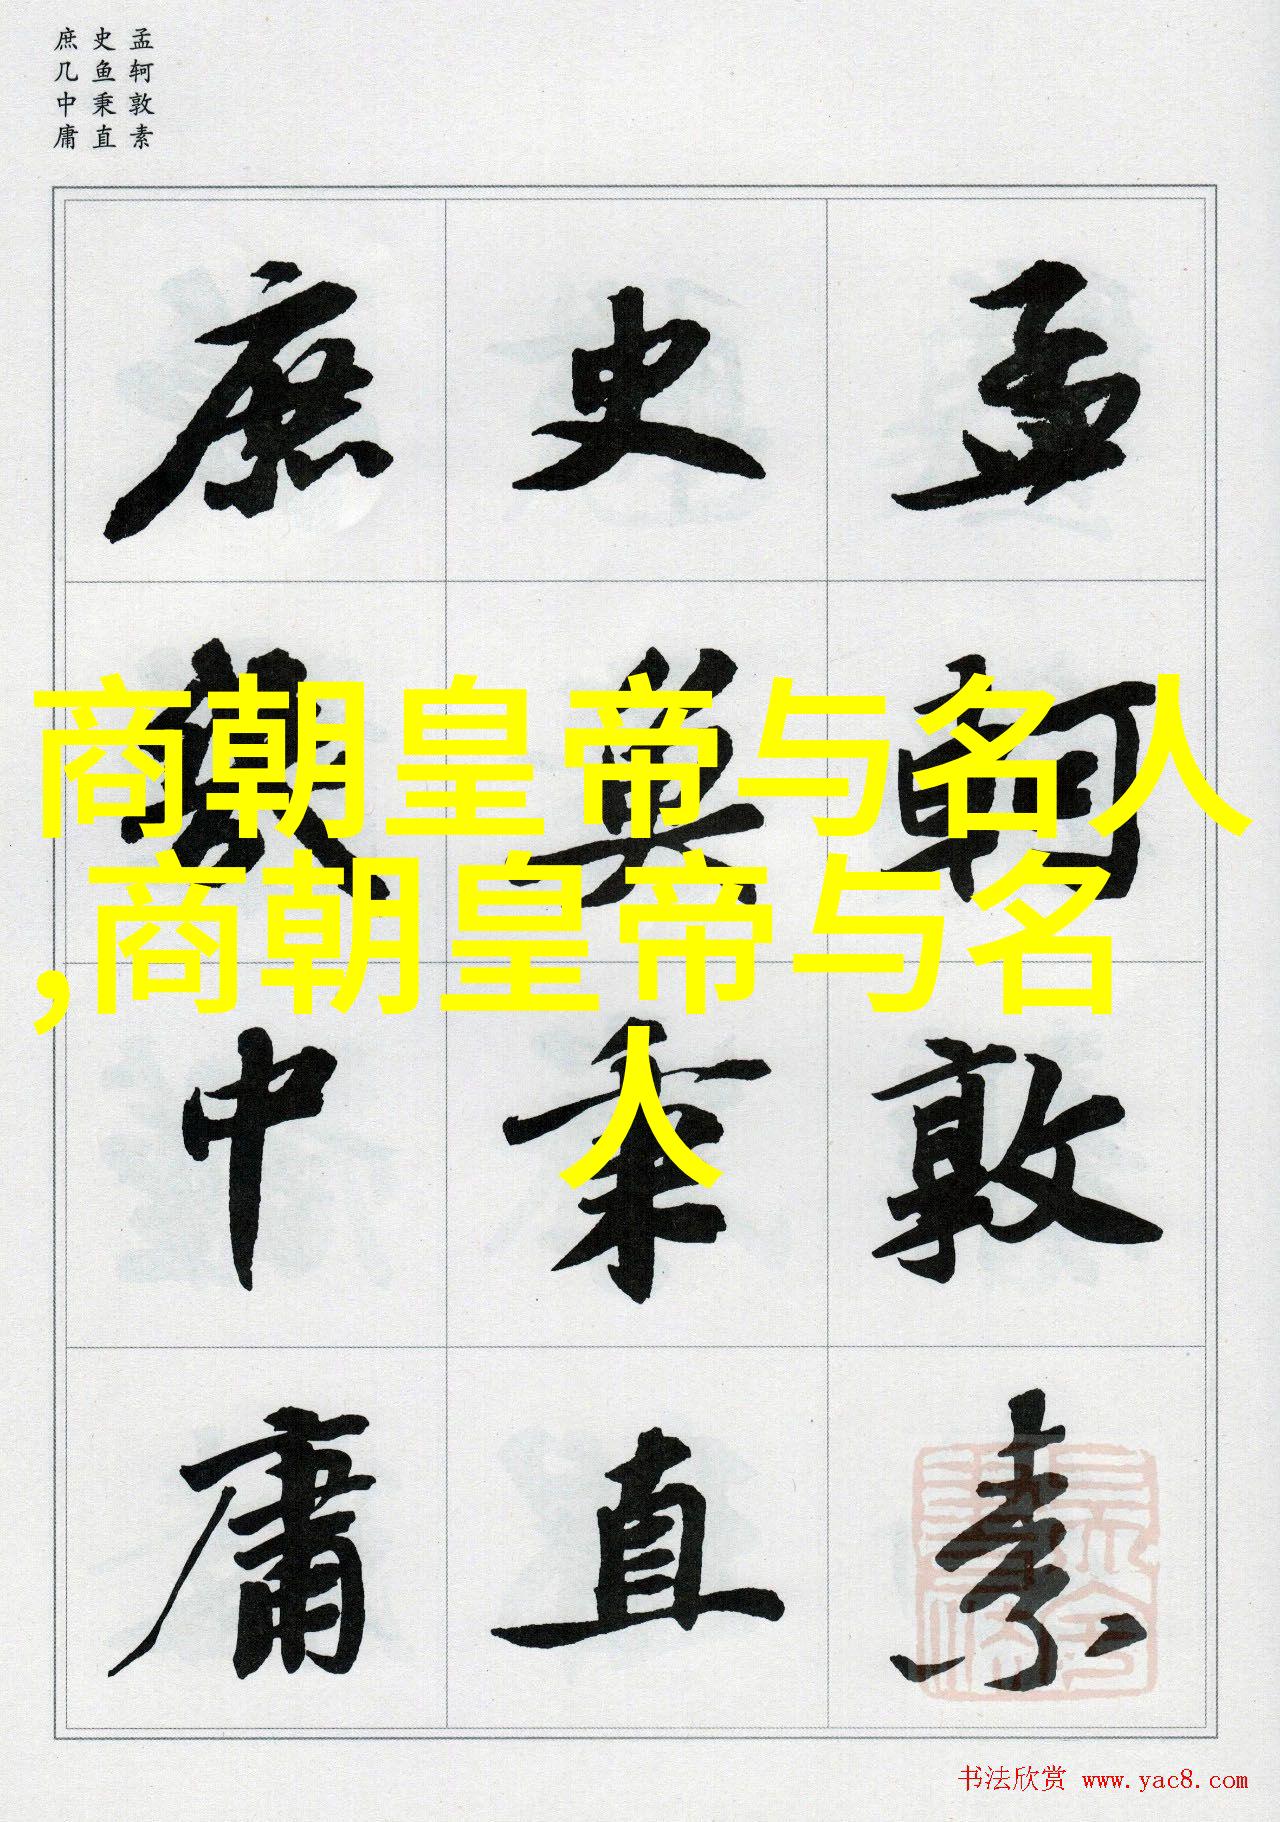 孟轲敦素
史鱼秉直
庶几中庸
商朝皇帝与名人
,商朝皇帝与名
人
孟軻敦素
史魚秉直
庶幾中庸
书法欣赏 www.yac8.com